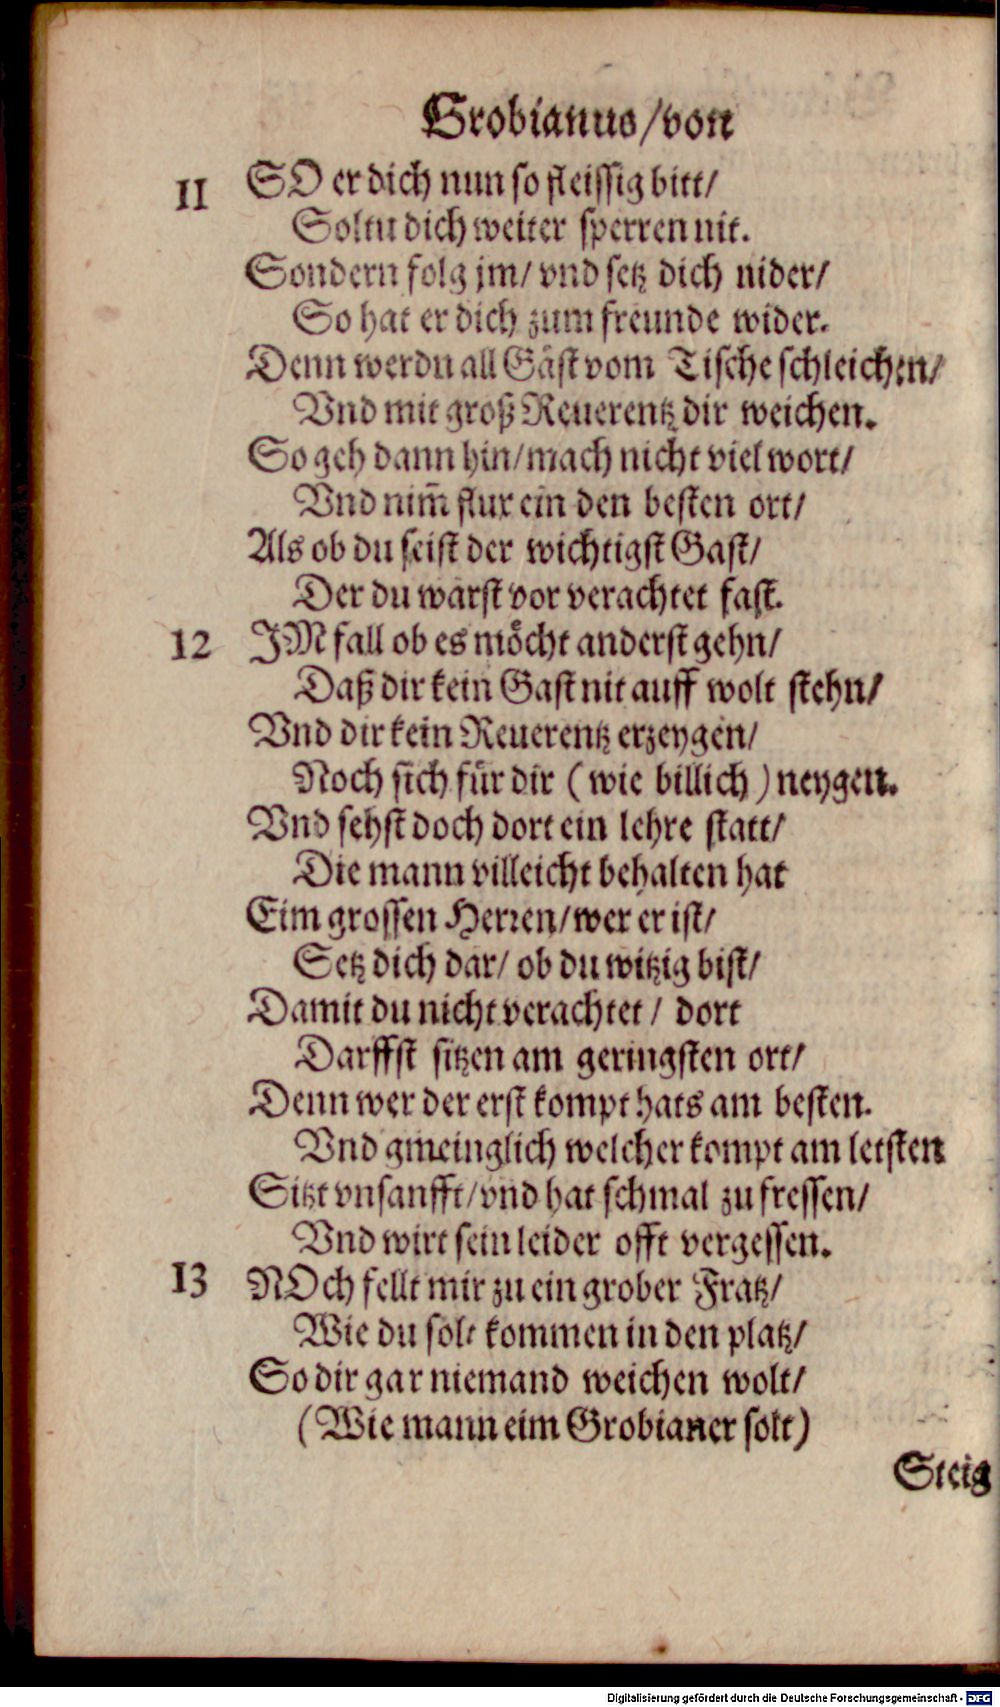 Grobianus/von
11 SO er dich nun so fleissig bitt/
Soltu dich weiter sperren nit.
Sondern folg jm/ vnd setz dich nider/
So hat er dich zum freunde wider.
Denn werdn all Gäst vom Tische schleichen/
Vnd mit groß Reuerentz dir weichen.
So geh dann hin/mach nicht viel wort/
Vnd nim̃ flux ein den besten ort/
Als ob du seist der wichtigst Gast/
Der du warst vor verachtet fast.
12 IM fall ob es möcht anderst gehn/
Daß dir kein Gast nit auff wolt stehn/
Vnd dir kein Reuerentz erzeygen/
Noch sich für dir (wie billich) neygen.
Vnd sehst doch dort ein lehre statt/
Die mann villeicht behalten hat
Eim grossen Herren/wer er ist/
Setz dich dar/ ob du witzig bist/
Damit du nicht verachtet/ dort
Darffst sitzen am geringsten ort/
Denn wer der erst kompt hats am besten.
Vnd gmeinglich welcher kompt am letsten
Sitzt vnsanfft/vnd hat schmal zu fressen/
Vnd wirt sein leider offt vergessen.
13 NOch fellt mir zu ein grober Fratz/
Wie du solt kommen in den platz/
So dir gar niemand weichen wolt/
(Wie mann eim Grobianer solt)
Steig
Digitalisierung gefördert durch die Deutsche Forschungsgemeinschaft - DFG